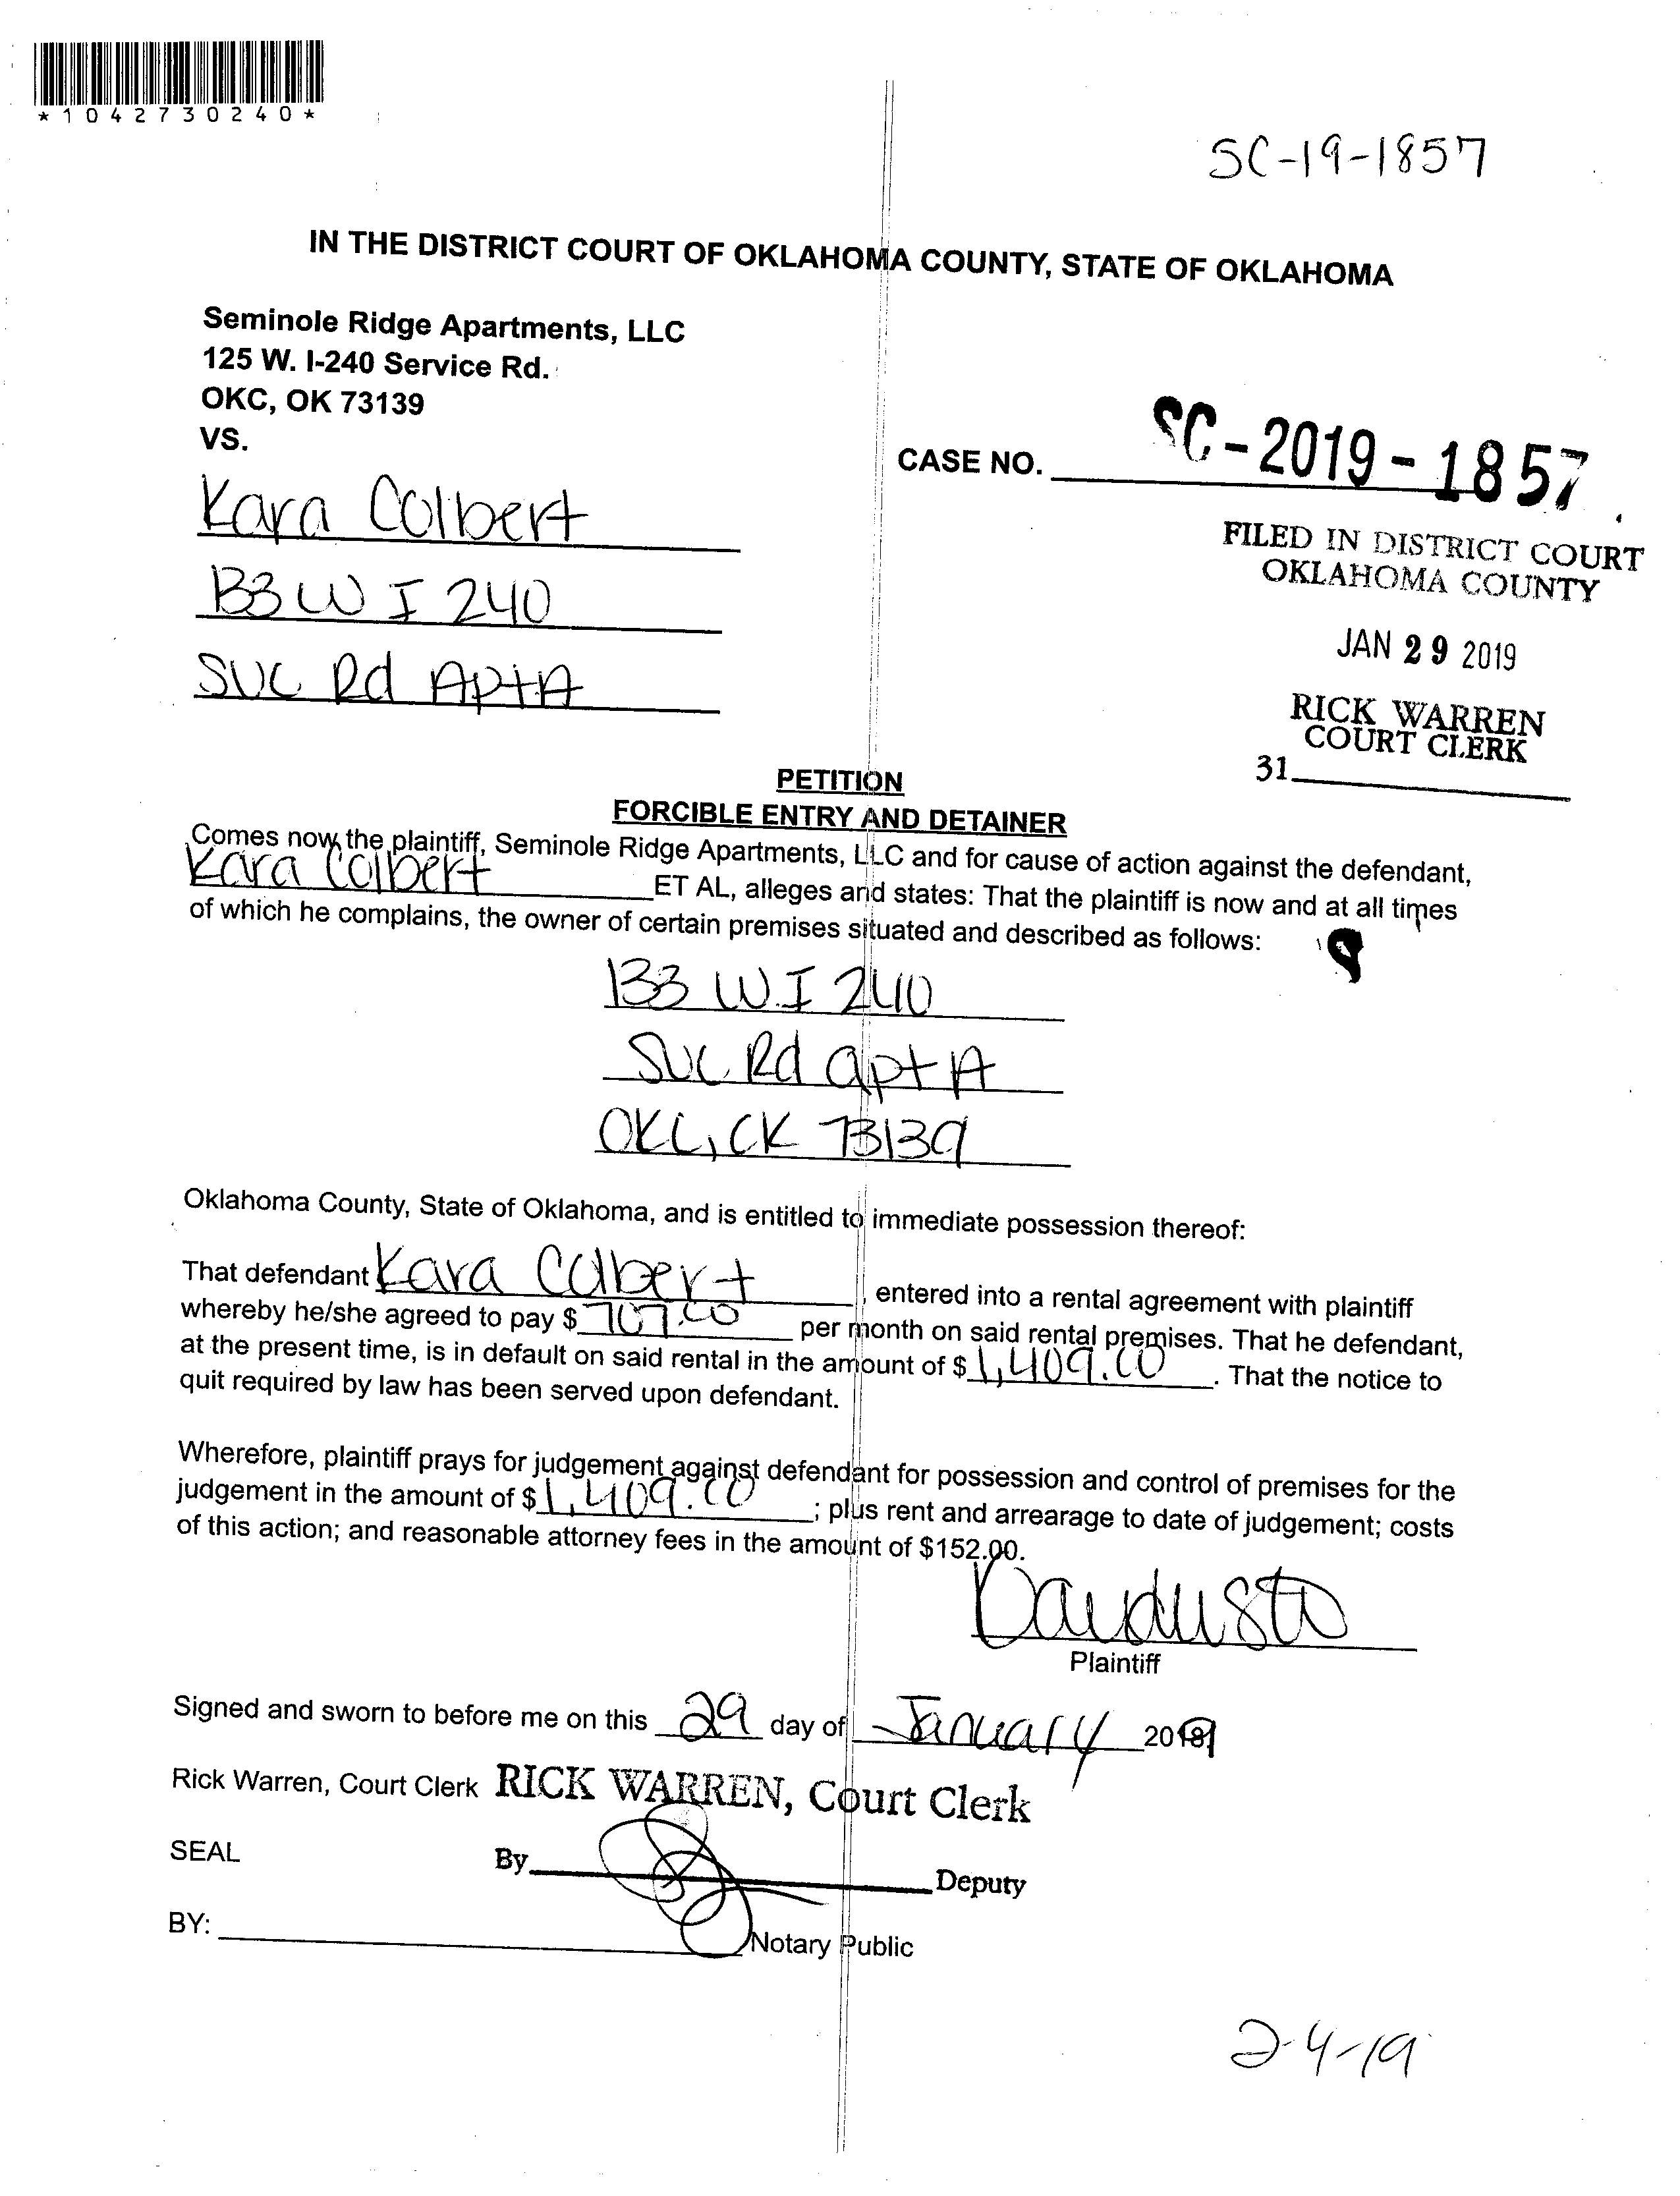 *1042730240*
SC-19-1857
IN THE DISTRICT COURT OF OKLAHOMA COUNTY, STATE OF OKLAHOMA
Seminole Ridge Apartments, LLC
125 W. I-240 Service Rd.
OKC, OK 73139
VS.
CASE NO. SC-2019-1857
Kara Colbert
133 W I 240
SVC Rd Apt A
FILED IN DISTRICT COURT
OKLAHOMA COUNTY
JAN 29 2019
RICK WARREN
COURT CLERK
31
PETITION
FORCIBLE ENTRY AND DETAINER
Comes now the plaintiff, Seminole Ridge Apartments, LLC and for cause of action against the defendant,
Kara Colbert ET AL, alleges and states: That the plaintiff is now and at all times
of which he complains, the owner of certain premises situated and described as follows:
133 W. I 240
SVC Rd apt A
OKC, OK 73139
Oklahoma County, State of Oklahoma, and is entitled to immediate possession thereof:
That defendant Kara Colbert, entered into a rental agreement with plaintiff
whereby he/she agreed to pay $ 707.00 per month on said rental premises. That he defendant,
at the present time, is in default on said rental in the amount of $ 1,409.00. That the notice to
quit required by law has been served upon defendant.
Wherefore, plaintiff prays for judgement against defendant for possession and control of premises for the
judgement in the amount of $ 1,409.00; plus rent and arrearage to date of judgement; costs
of this action; and reasonable attorney fees in the amount of $152.00.
Plaintiff
Signed and sworn to before me on this 29 day of January 2019
Rick Warren, Court Clerk RICK WARREN, Court Clerk
SEAL
By Deputy
BY: Notary Public
2-4-19